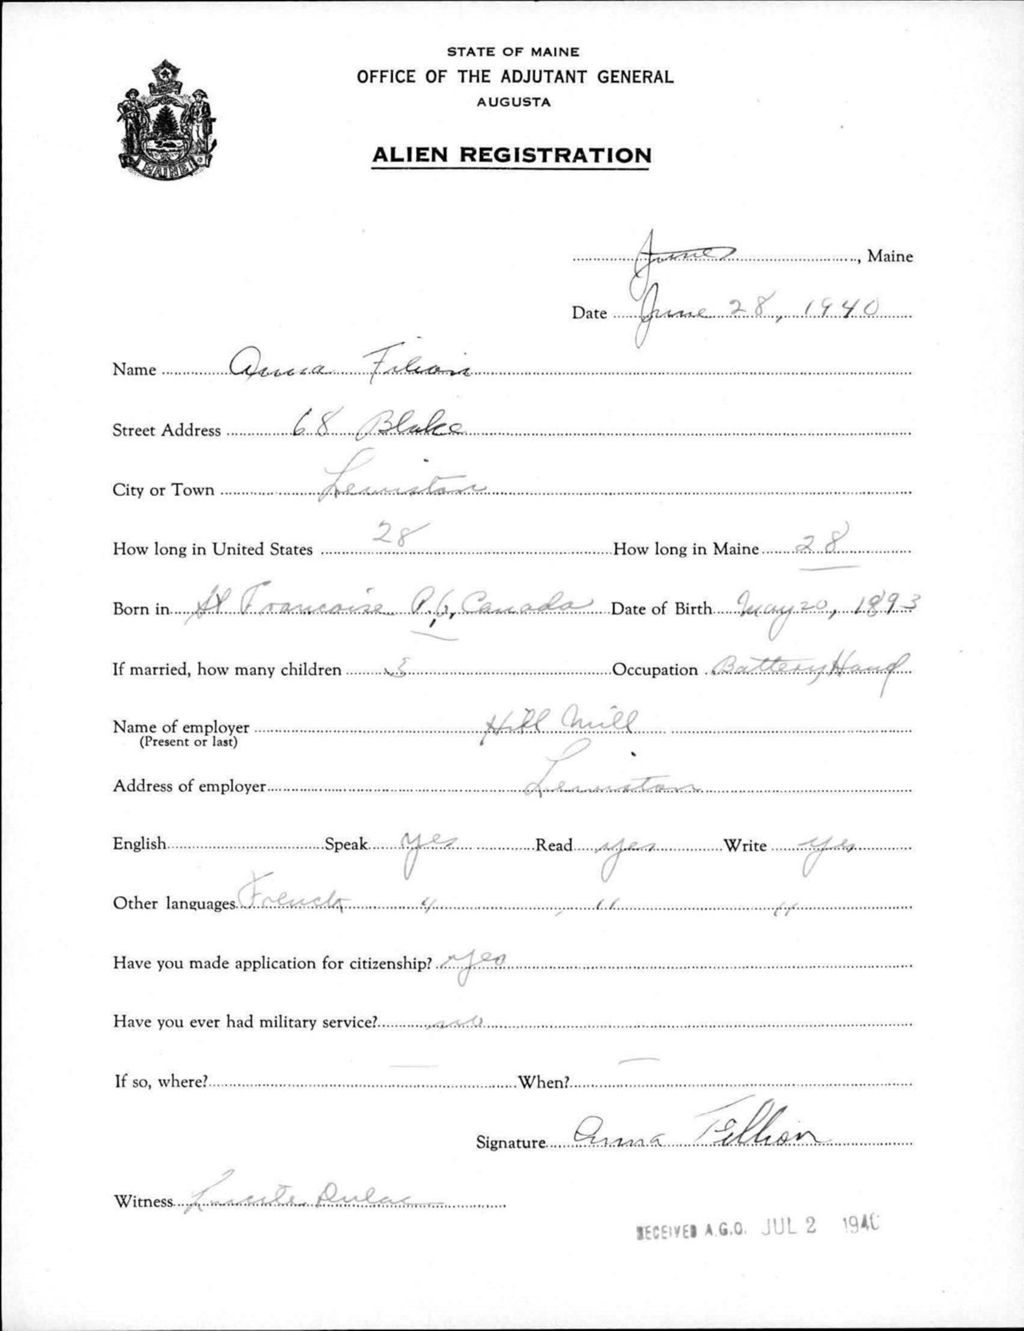 STATE OF MAINE
OFFICE OF THE ADJUTANT GENERAL
AUGUSTA
ALIEN REGISTRATION
MAINE
June, Maine
Date June 28, 1940
Name Anna Filion
Street Address 68 Blake
City or Town Lewiston
How long in United States 28 How long in Maine 28
Born in St Francoise P.Q, Canada Date of Birth May 20, 1893
If married, how many children 3 Occupation Battery Hand
Name of employer Hill Mill
(Present or last)
Address of employer Lewiston
English Speak yes Read yes Write yes
Other languages French " " "
Have you made application for citizenship? yes
Have you ever had military service? no
If so, where? — When? —
Signature Anna Fillion
Witness Lucile Dulac
RECEIVED A.G.O. JUL 2 1940